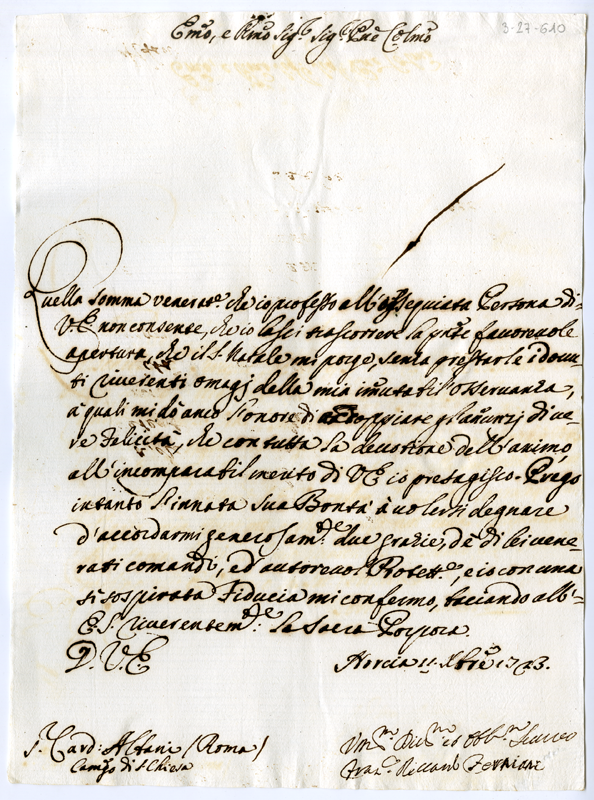 3-27-610
Emo, e Rmo Sig.r Sig.r Pne Colmo
Quella somma venerat.e che io professo all'ossequiata Persona di
V.E. non consente, che io lasci trascorrere la pnte favorevole
apertura, che il S. Natale mi porge, senza prestarle i dovu-
ti riverenti omagj della mia immutabil osservanza,
a quali mi do anco l'onore di accoppiare gl'annunzj di ve-
re felicità, che con tutta la devotione dell'animo
all'incomparabil merito di V.E. io presagisco. Prego
intanto l'innata sua Bontà à volersi degnare
d'accordarmi generosam.te due grazie, de di lei vene-
rati comandi, ed autorevol Protett.e, e io con una
sì sospirata fiducia mi confermo, baciando all'
E.S. riverentem.te la Sacra Porpora.
D.V.E. Norcia 11 Xbre 1723.
S. Card: Albani (Roma)
Camgo di S. Chiesa
Vm.o Div.mo ed Obb.mo
Fran.o